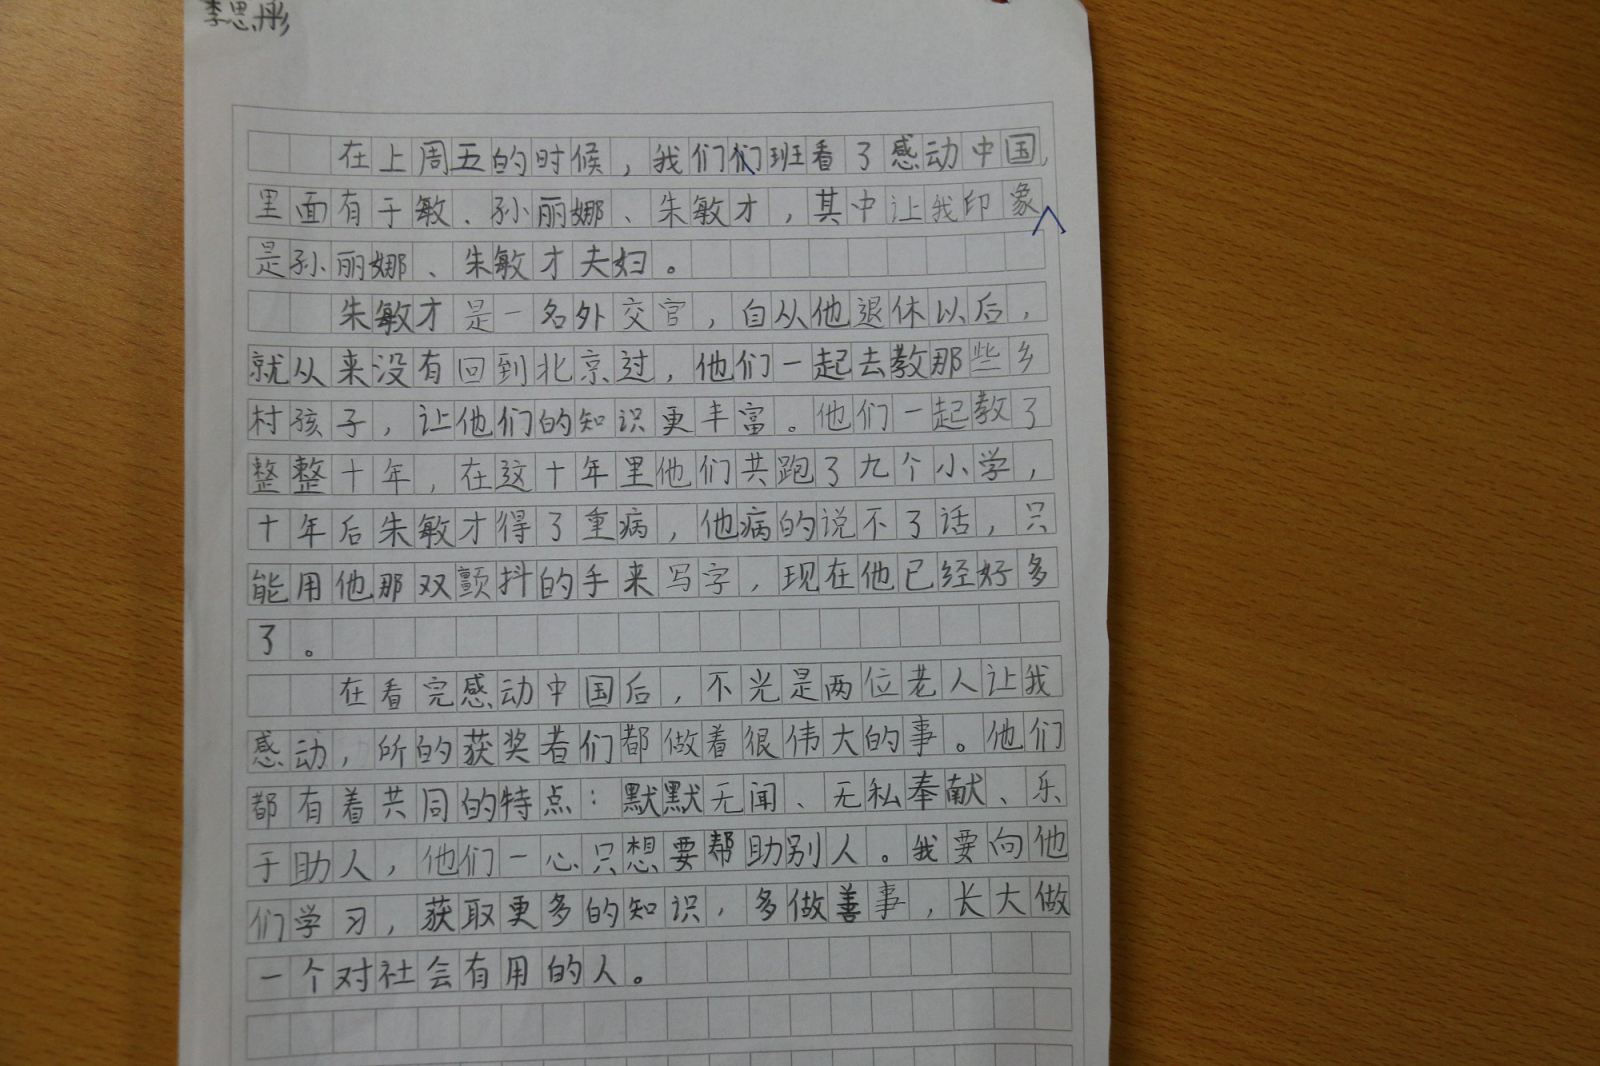 李思彤
在上周五的时候，我们们班看了感动中国，
里面有于敏、孙丽娜、朱敏才，其中让我印象
是孙丽娜、朱敏才夫妇。
朱敏才是一名外交官，自从他退休以后，
就从来没有回到北京过，他们一起去教那些乡
村孩子，让他们的知识更丰富。他们一起教了
整整十年，在这十年里他们共跑了九个小学，
十年后朱敏才得了重病，他病的说不了话，只
能用他那双颤抖的手来写字，现在他已经好多
了。
在看完感动中国后，不光是两位老人让我
感动，所的获奖者们都做着很伟大的事。他们
都有着共同的特点：默默无闻、无私奉献、乐
于助人，他们一心只想要帮助别人。我要向他
们学习，获取更多的知识，多做善事，长大做
一个对社会有用的人。